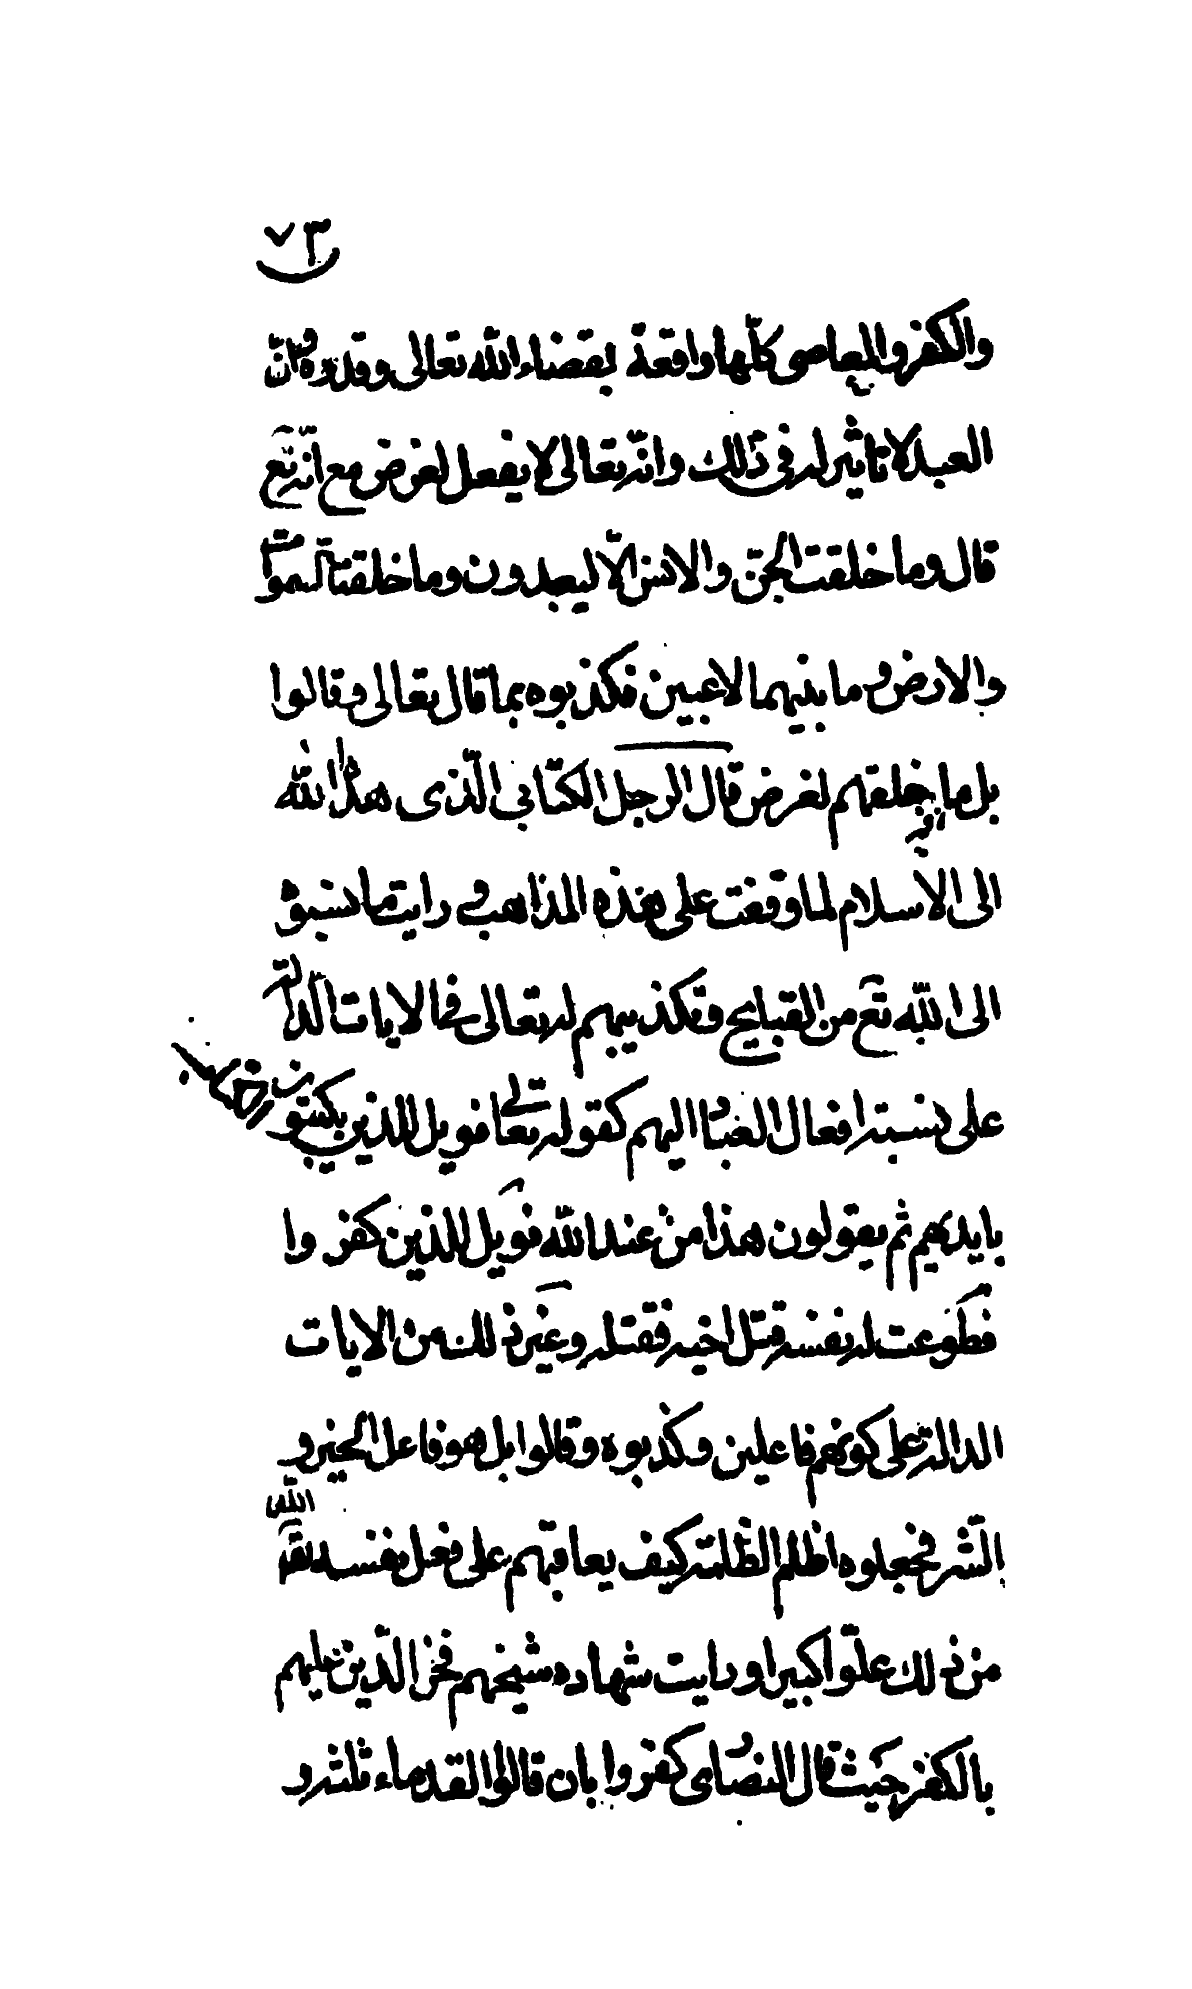 ٧٣
والكفر والمعاصى كلّها واقعة بقضاء الله تعالى وقدره وانّ
العبد لا تاثير له فى ذلك وانّه تعالى لا يفعل لغرض مع انه تع
قال وما خلقت الجنّ والانس الّا ليعبدون وما خلقنا السموا
والارض وما بينهما لاعبين فكذبوه بما قال تعالى وقالوا
بل ما خلقهم لغرض قال الرجل الكتابى الّذى هداه الله
الى الاسلام لما وقفت على هذه المذاهب و رايت ما نسبوه
الى الله تع من القبايح وتكذيبهم له تعالى فى الايات الدالة
على نسبة افعال العباد اليهم كقوله تعالى فويل للذين يكتبون الكتاب
بايديهم ثم يقولون هذا من عند الله فويل للذين كفروا
فطوعت له نفسه قتل اخيه فقتله وغير ذلك من الايات
الدالة على كونهم فاعلين وكذبوه وقالوا بل هو فاعل الخير و
الشّر فجعلوه اظلم الظّلمة كيف يعاقبهم على فعل نفسه تعالى الله
من ذلك علّوا كبيرا ورايت شهادة شيخهم فخر الّذين عليهم
بالكفر حيث قال النصارى كفروا بان قالوا القدماء ثلثة و